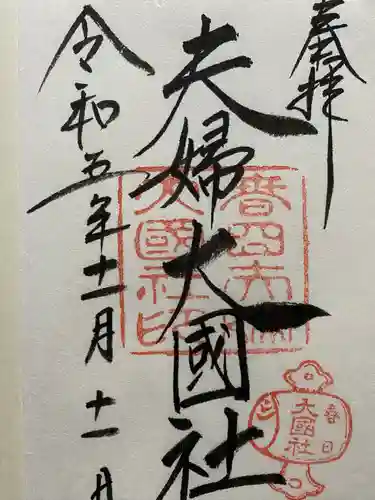 奉拝
夫婦大國社
令和五年十一月十一日
春日
大國社